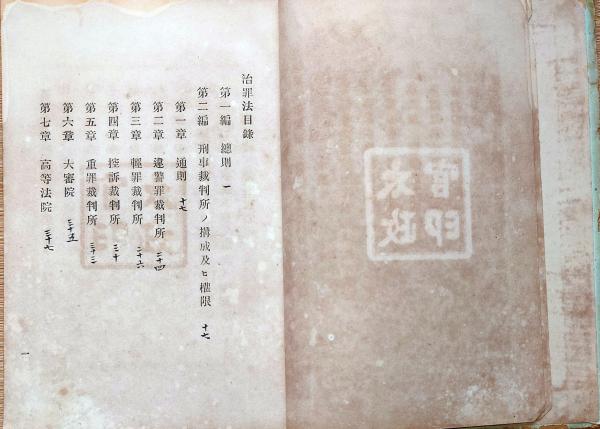 治罪法目錄
第一編 總則 一
第二編 刑事裁判所ノ搆成及ヒ權限 十七
第一章 通則 十七
第二章 違警罪裁判所 二十四
第三章 輕罪裁判所 二十六
第四章 控訴裁判所 三十
第五章 重罪裁判所 三十二
第六章 大審院 三十五
第七章 高等法院 三十七
一